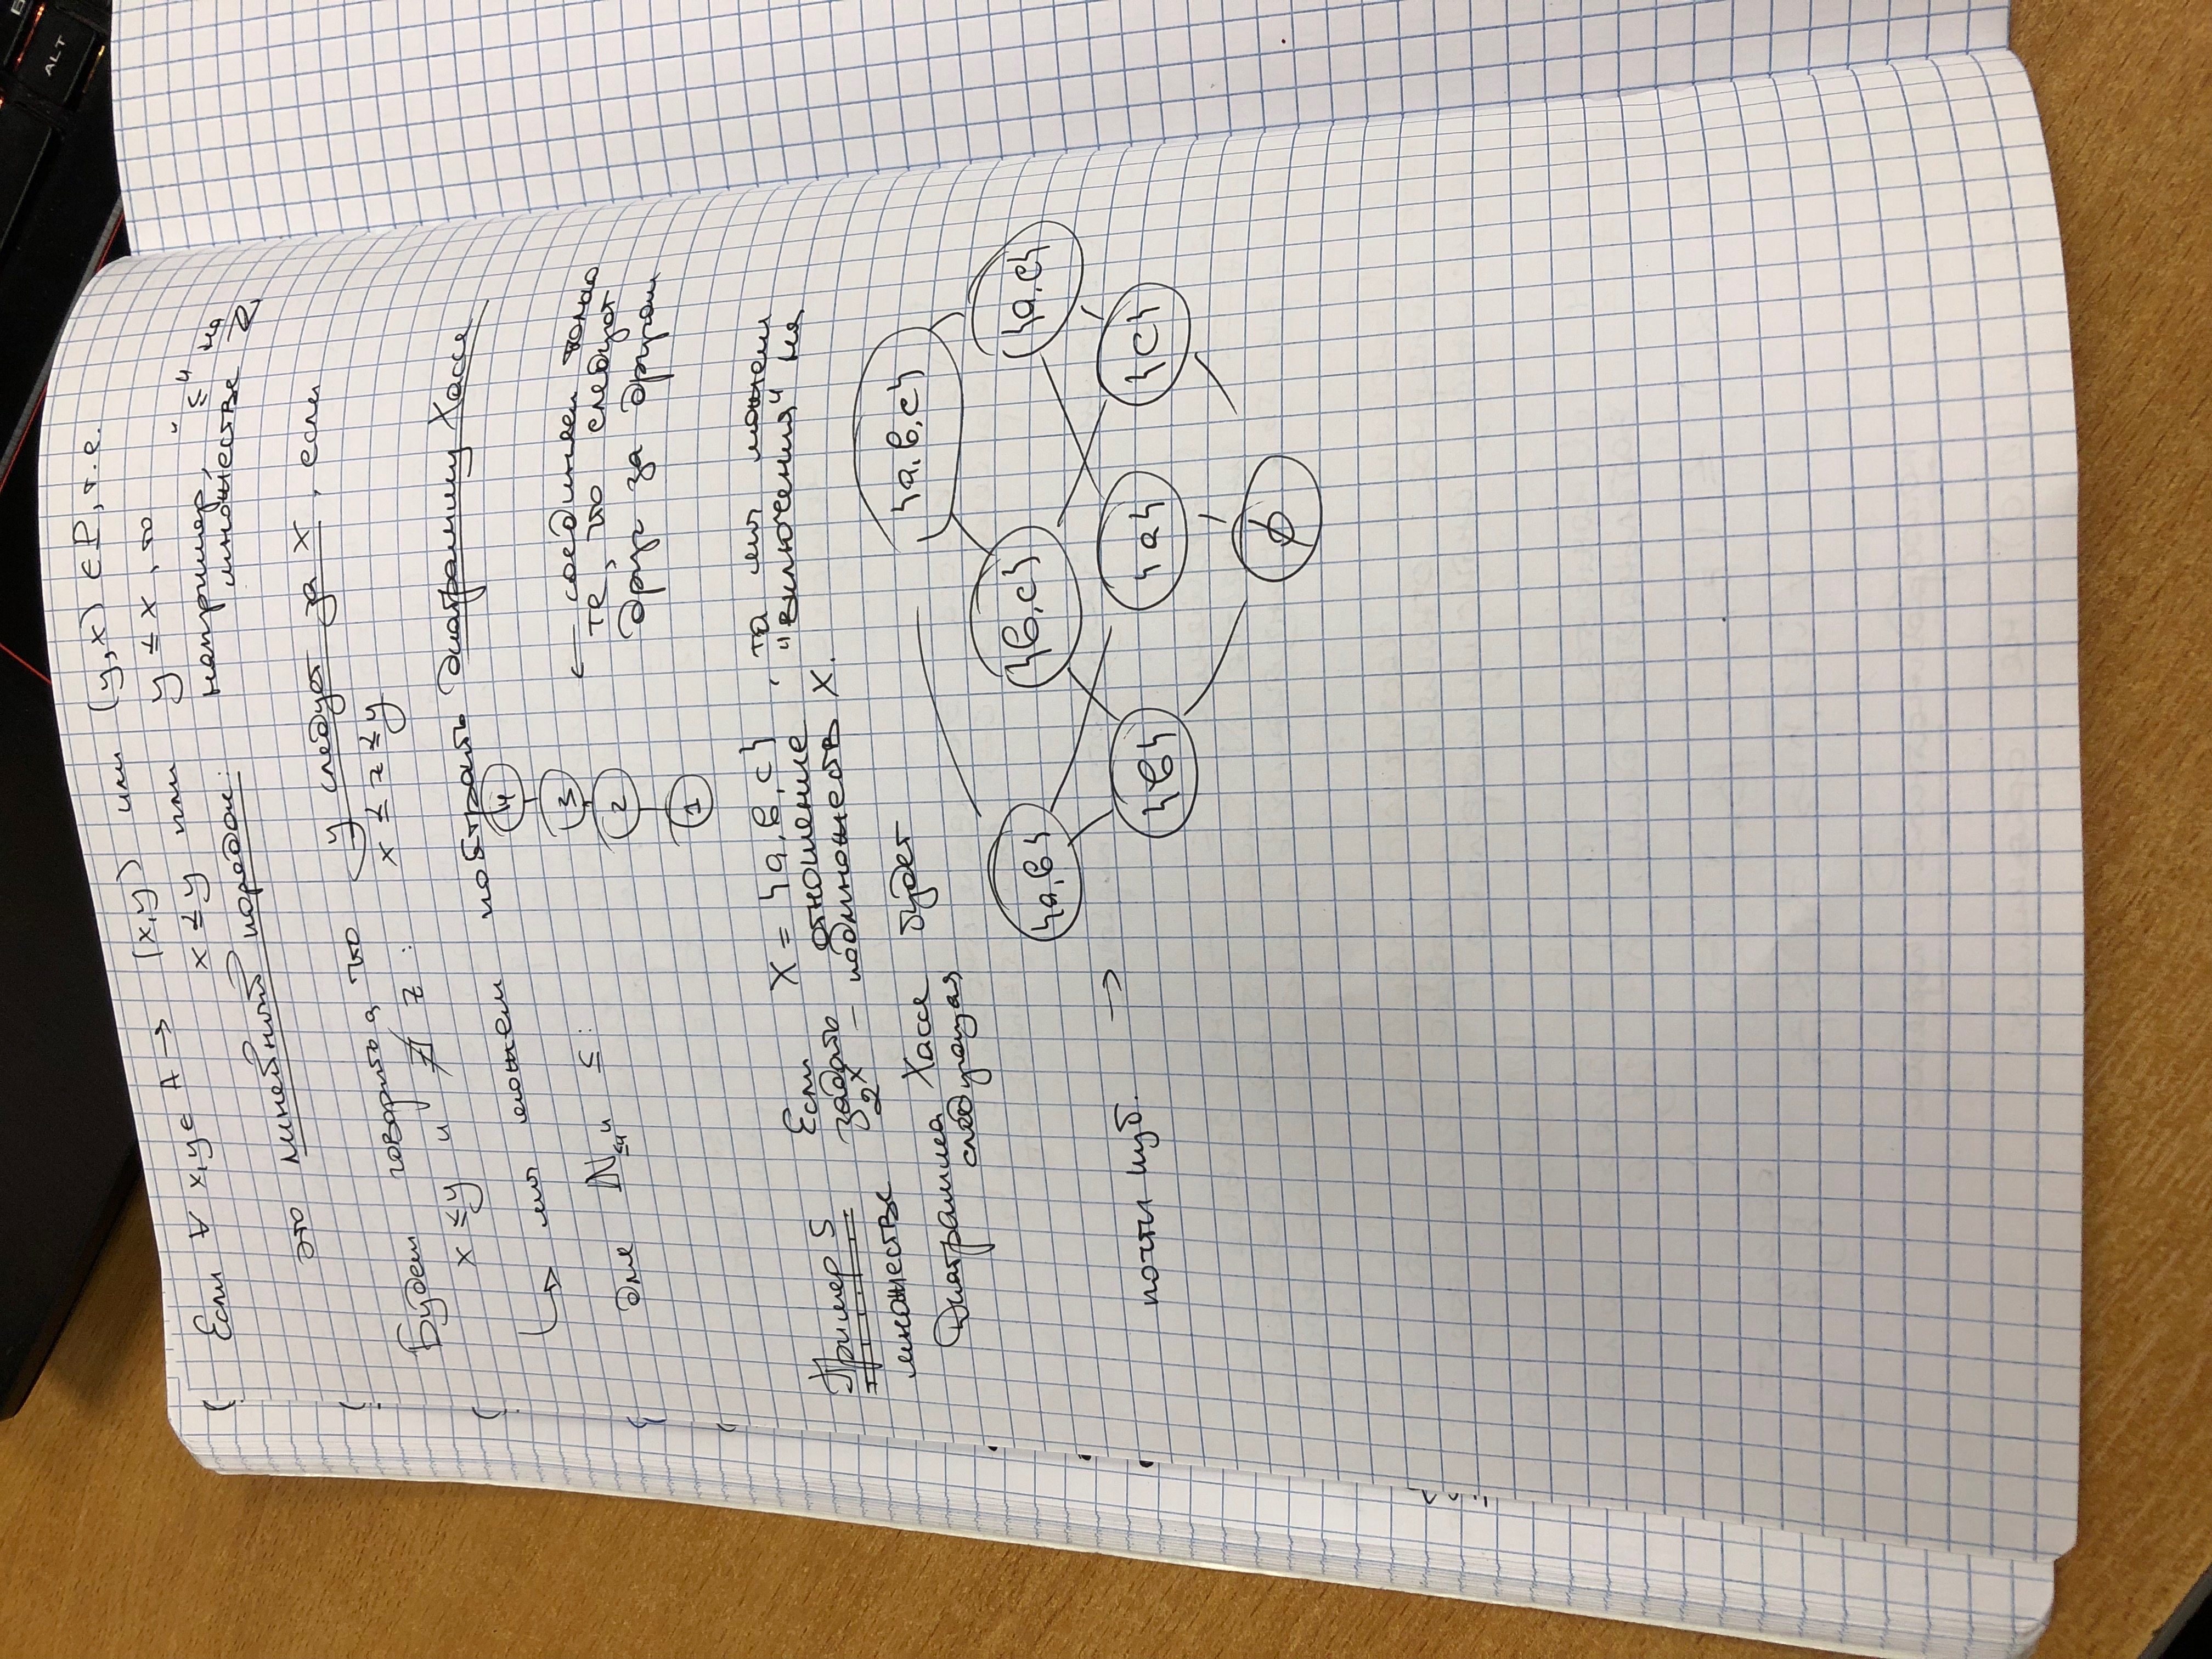 Если ∀ x,y ∈ A → (x,y) или (y,x) ∈ P, т.е.
x ≤ y или y ≤ x, то
это линейный порядок: например, "≤" на
множестве ℤ
Будем говорить, что y следует за x, если
x ≤ y и ∄ z : x ≤ z ≤ y
↳ мы можем построить диаграмму Хассе
для ℕ≤4 ≤:
4
3
2
1
← соединяем только
те, что следуют
друг за другом
Пример 5 Если X = {a,b,c}, то мы можем
задать отношение "включения" на
множестве 2^X – подмножеств X.
Диаграмма Хассе будет
следующая
{a,b,c}
{a,b} {b,c} {a,c}
почти куб. →
{b} {a} {c}
∅
ALT